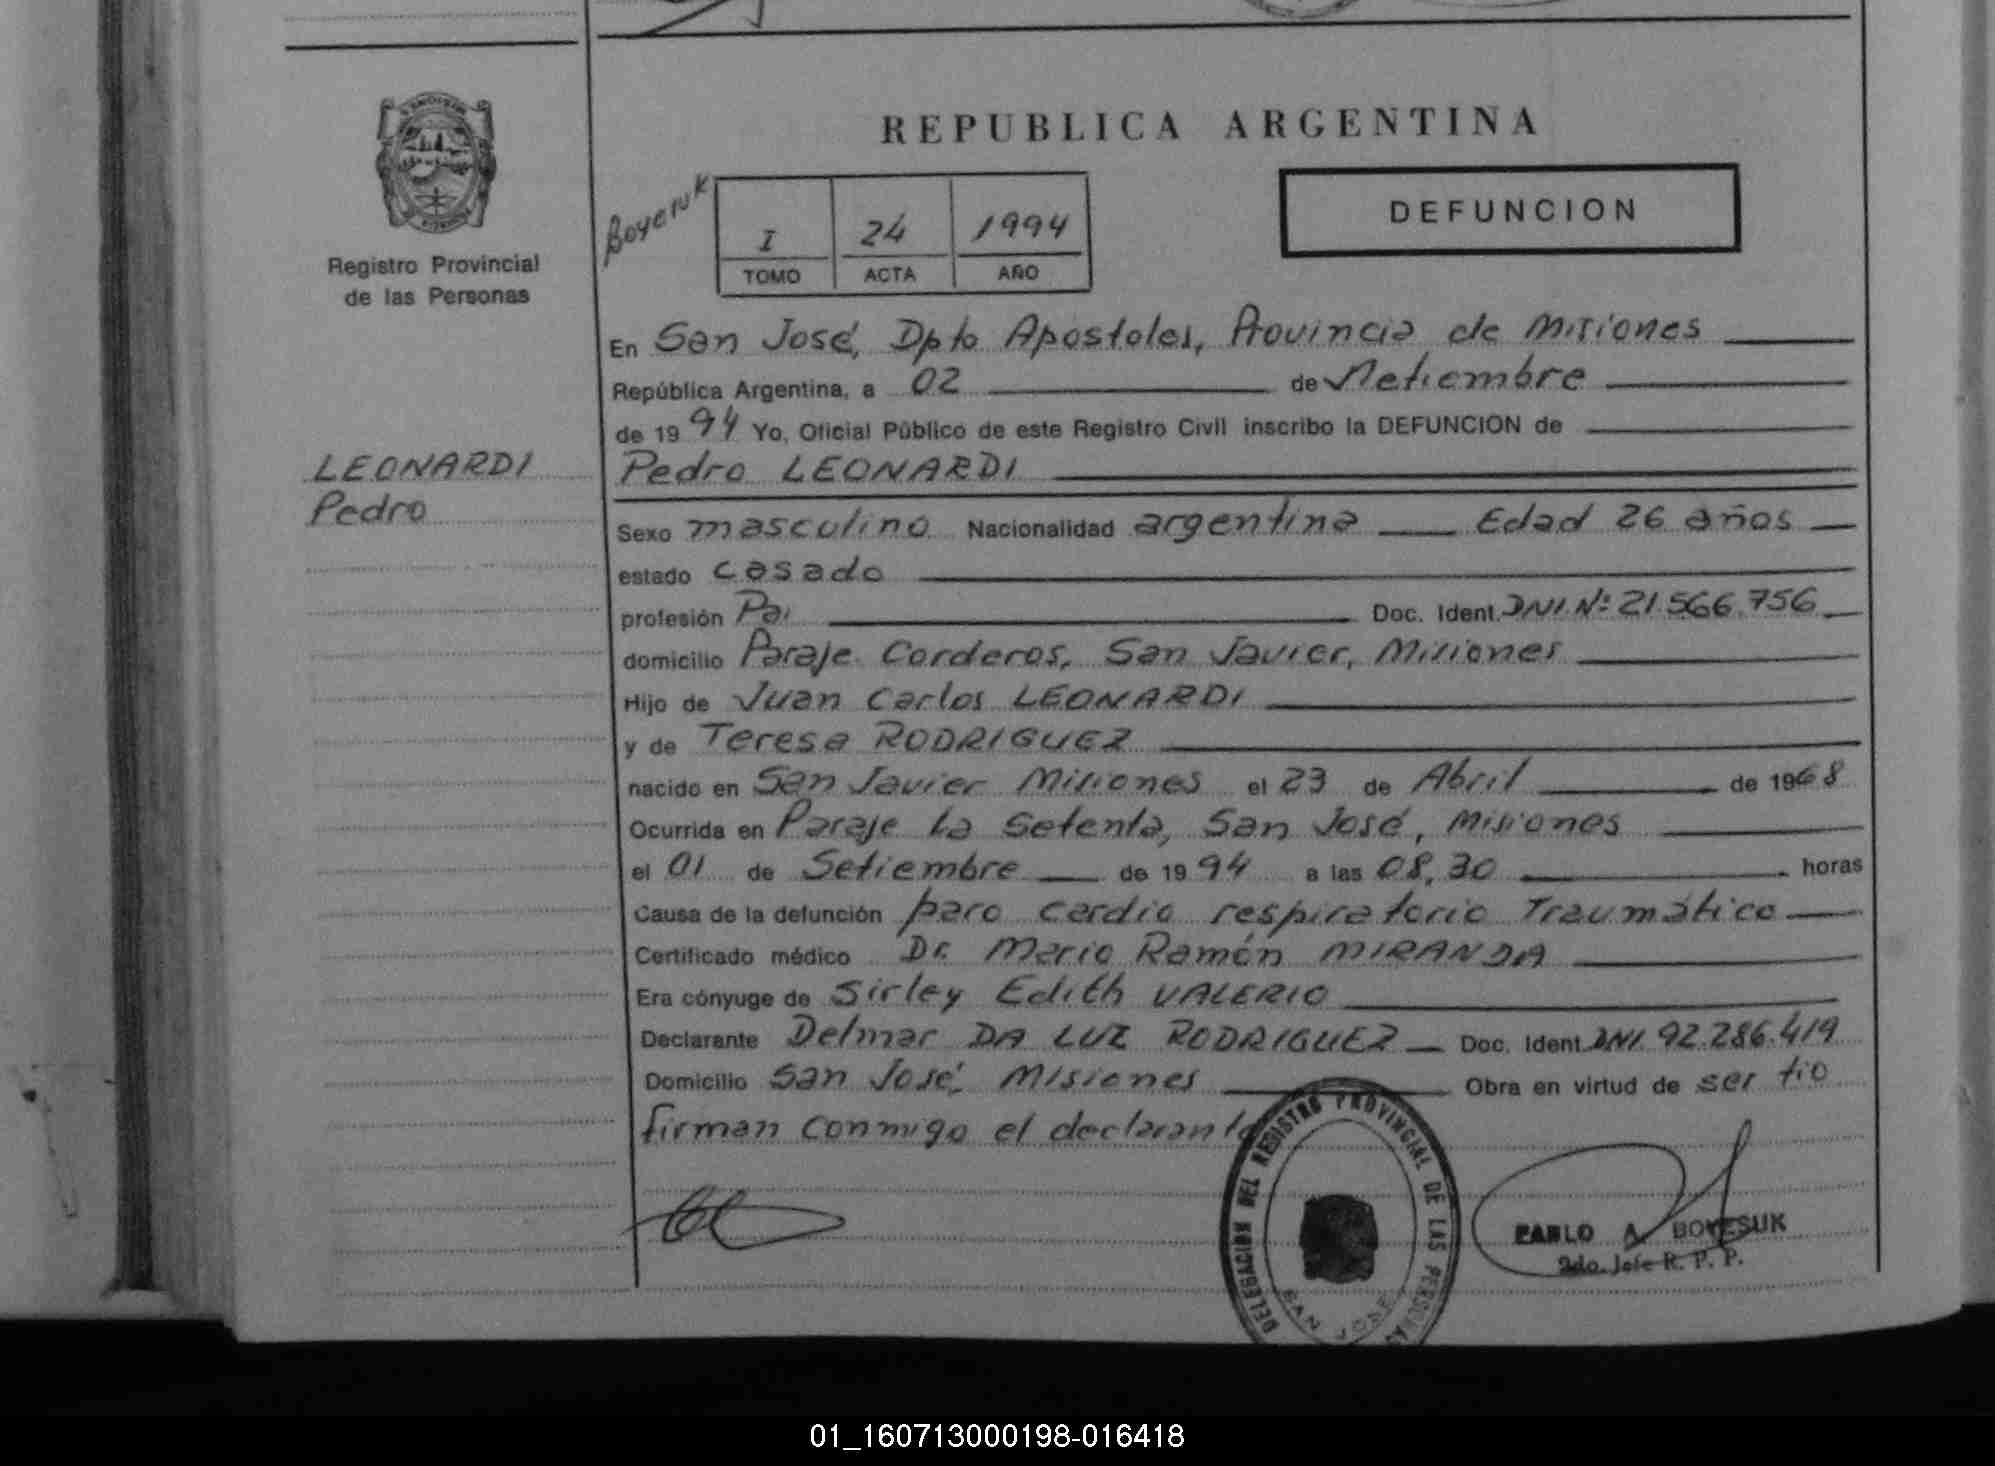 MISIONES
Registro Provincial
de las Personas
LEONARDI
Pedro
REPUBLICA ARGENTINA
Boyesuk
I 24 1994
TOMO ACTA AÑO
DEFUNCION
En San José, Dpto Apostoles, Provincia de Misiones
República Argentina, a 02 de Setiembre
de 1994 Yo, Oficial Público de este Registro Civil inscribo la DEFUNCION de
Pedro LEONARDI
Sexo masculino Nacionalidad argentina Edad 26 años
estado casado
profesión Doc. Ident. DNI Nº 21.566.756
domicilio Paraje Corderos, San Javier, Misiones
Hijo de Juan Carlos LEONARDI
y de Teresa RODRIGUEZ
nacido en San Javier Misiones el 23 de Abril de 1968
Ocurrida en Paraje La Setenta, San José, Misiones
el 01 de Setiembre de 1994 a las 08,30 horas
Causa de la defunción paro cardio respiratorio Traumático
Certificado médico Dr. Mario Ramón MIRANDA
Era cónyuge de Sirley Edith VALERIO
Declarante Delmar DA LUZ RODRIGUEZ Doc. Ident. DNI. 92.286.419
Domicilio San José, Misiones Obra en virtud de ser tio
firman conmigo el declarante
DELEGACION DEL REGISTRO PROVINCIAL DE LAS PERSONAS
SAN JOSE
PABLO A. BOYESUK
2do. Jefe R. P. P.
01_160713000198-016418